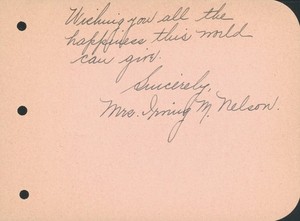 Wishing you all the
happiness this world
can give.
Sincerely,
Mrs. Irving M. Nelson.